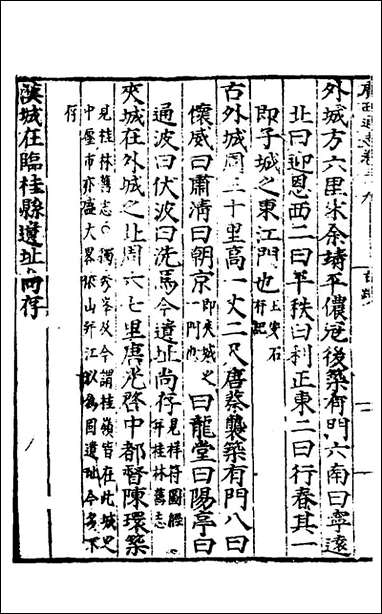 外城方六里宋余靖平儂冦後築有門六南曰寧遠
北曰迎恩西二曰平秩曰利正東二曰行春其一
即子城之東江門也王安石記
古外城周三十里高一丈二尺唐蔡襲築有門八曰
懷威曰肅清曰朝京即夾城之一門也曰龍堂曰陽亭曰
通波曰伏波曰洗馬今遺址尚存見祥符圖經幷桂林舊志
夾城在外城之北周六七里唐光啓中都督陳環築
見桂林舊志○獨秀峯後今謂桂嶺皆在此城之
中壓市亦盛大畧山江以為固遺址今多不
存
漢城在臨桂縣遺址尚存